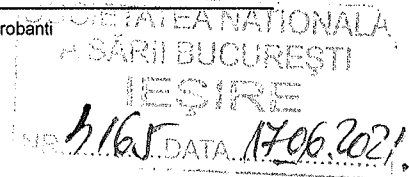 robanti
SOCIETATEA NAȚIONALĂ
A SĂRII BUCUREȘTI
IEȘIRE
NR. 4165 DATA 17.06.2021.